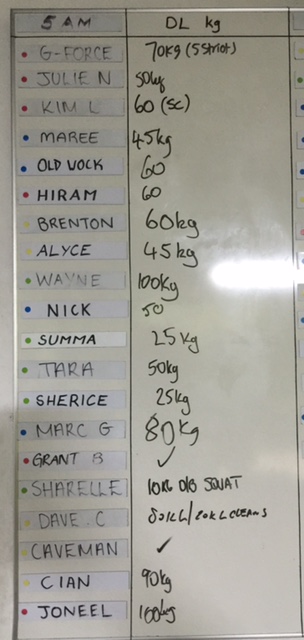 5 AM DL kg
G-FORCE 70kg (5 Strict)
JULIE N 50kg
KIM L 60 (SC)
MAREE 45kg
OLD VOCK 60
HIRAM 60
BRENTON 60kg
ALYCE 45kg
WAYNE 100kg
NICK 50
SUMMA 25kg
TARA 50kg
SHERICE 25kg
MARC G 80kg
GRANT B ✓
SHARELLE 10KG D/B SQUAT
DAVE.C
CAVEMAN ✓
CIAN 90kg
JONEEL 100kg